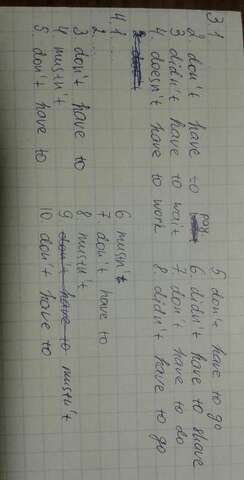 3.1
2 don't have to pay
3 didn't have to wait
4 doesn't have to work
5 don't have to go
6. didn't have to shave
7 don't have to do
8 didn't have to go
4. 1 ...
2 ...
3 don't have to
4 mustn't
5 don't have to
6 mustn't
7 don't have to
8 mustn't
9 don't have to mustn't
10 don't have to